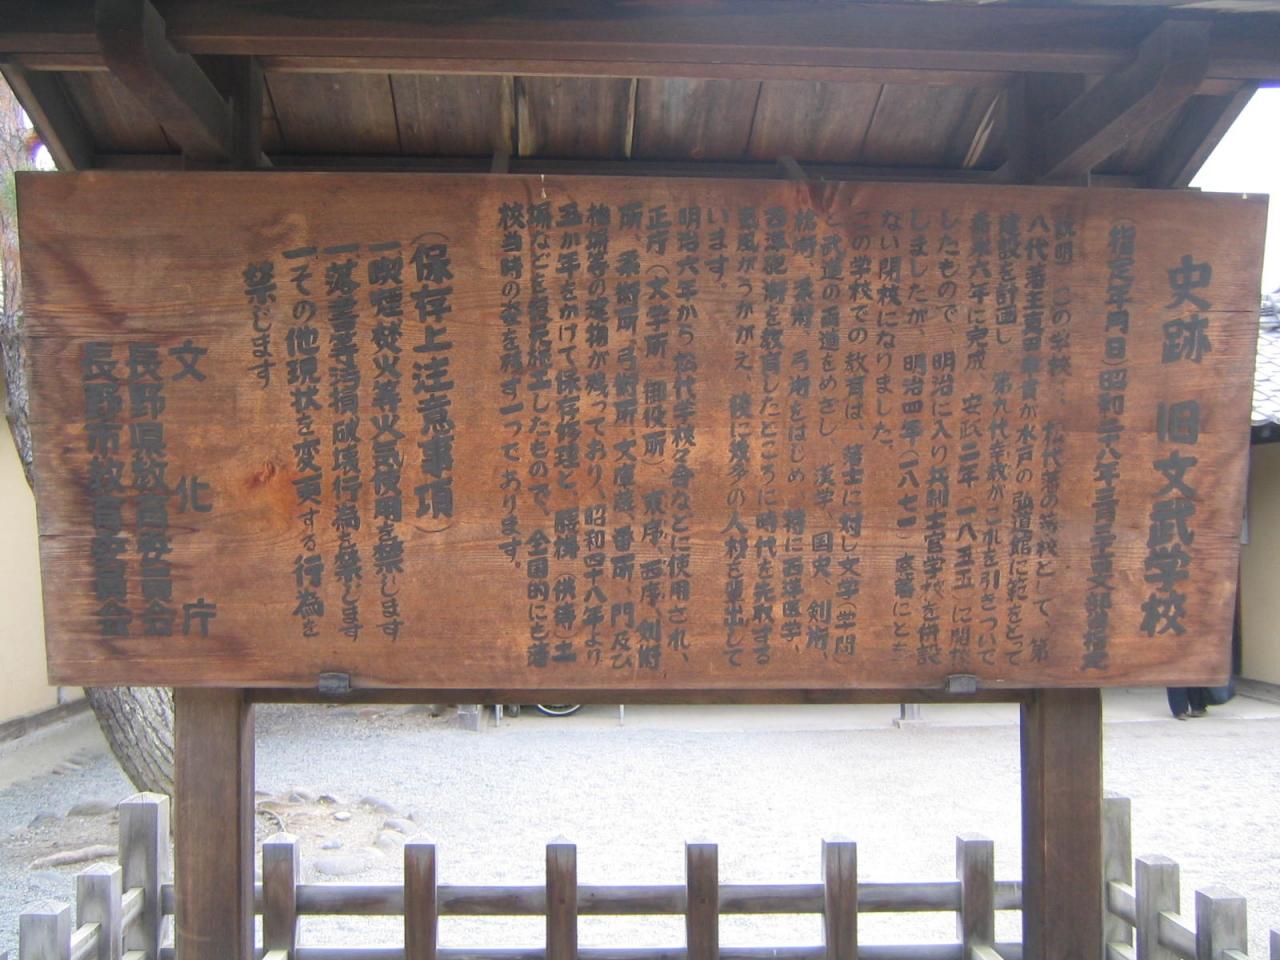 史跡 旧文武学校
(指定年月日)昭和二十八年三月三十一日文部省指定
説明 この学校は、松代藩の藩校として、第
八代藩主真田幸貫が水戸の弘道館に範をとって
建設を計画し、第九代幸教がこれを引きついで
嘉永六年に完成、安政二年(一八五五)に開校
したもので、明治に入り兵制士官学校を併設
しましたが、明治四年(一八七一)廃藩にとも
ない閉校になりました。
この学校での教育は、藩士に対し文学(学問
と武道の両道をめざし、漢学、国史、剣術、
槍術、柔術、弓術をはじめ、特に西洋医学、
西洋砲術を教育したところに時代を先取する
気風がうかがえ、後に幾多の人材を輩出して
います。
明治六年から松代学校々舎などに使用され、
正庁(文学所、御役所)、東序、西序、剣術
所、柔術所、弓術所、文庫蔵、番所、門及び
槍術所等の建物が残っており、昭和四十八年より
五か年をかけて保存修理と、
塀などを復元施工したもので、全国的にも藩
校当時の姿を残す一つであります。
(保存上注意事項)
一喫煙焚火等火気使用を禁じます
一落書等汚損破壊行為を禁じます
一その他現状を変更する行為を
禁じます
文化庁
長野県教育委員会
長野市教育委員会